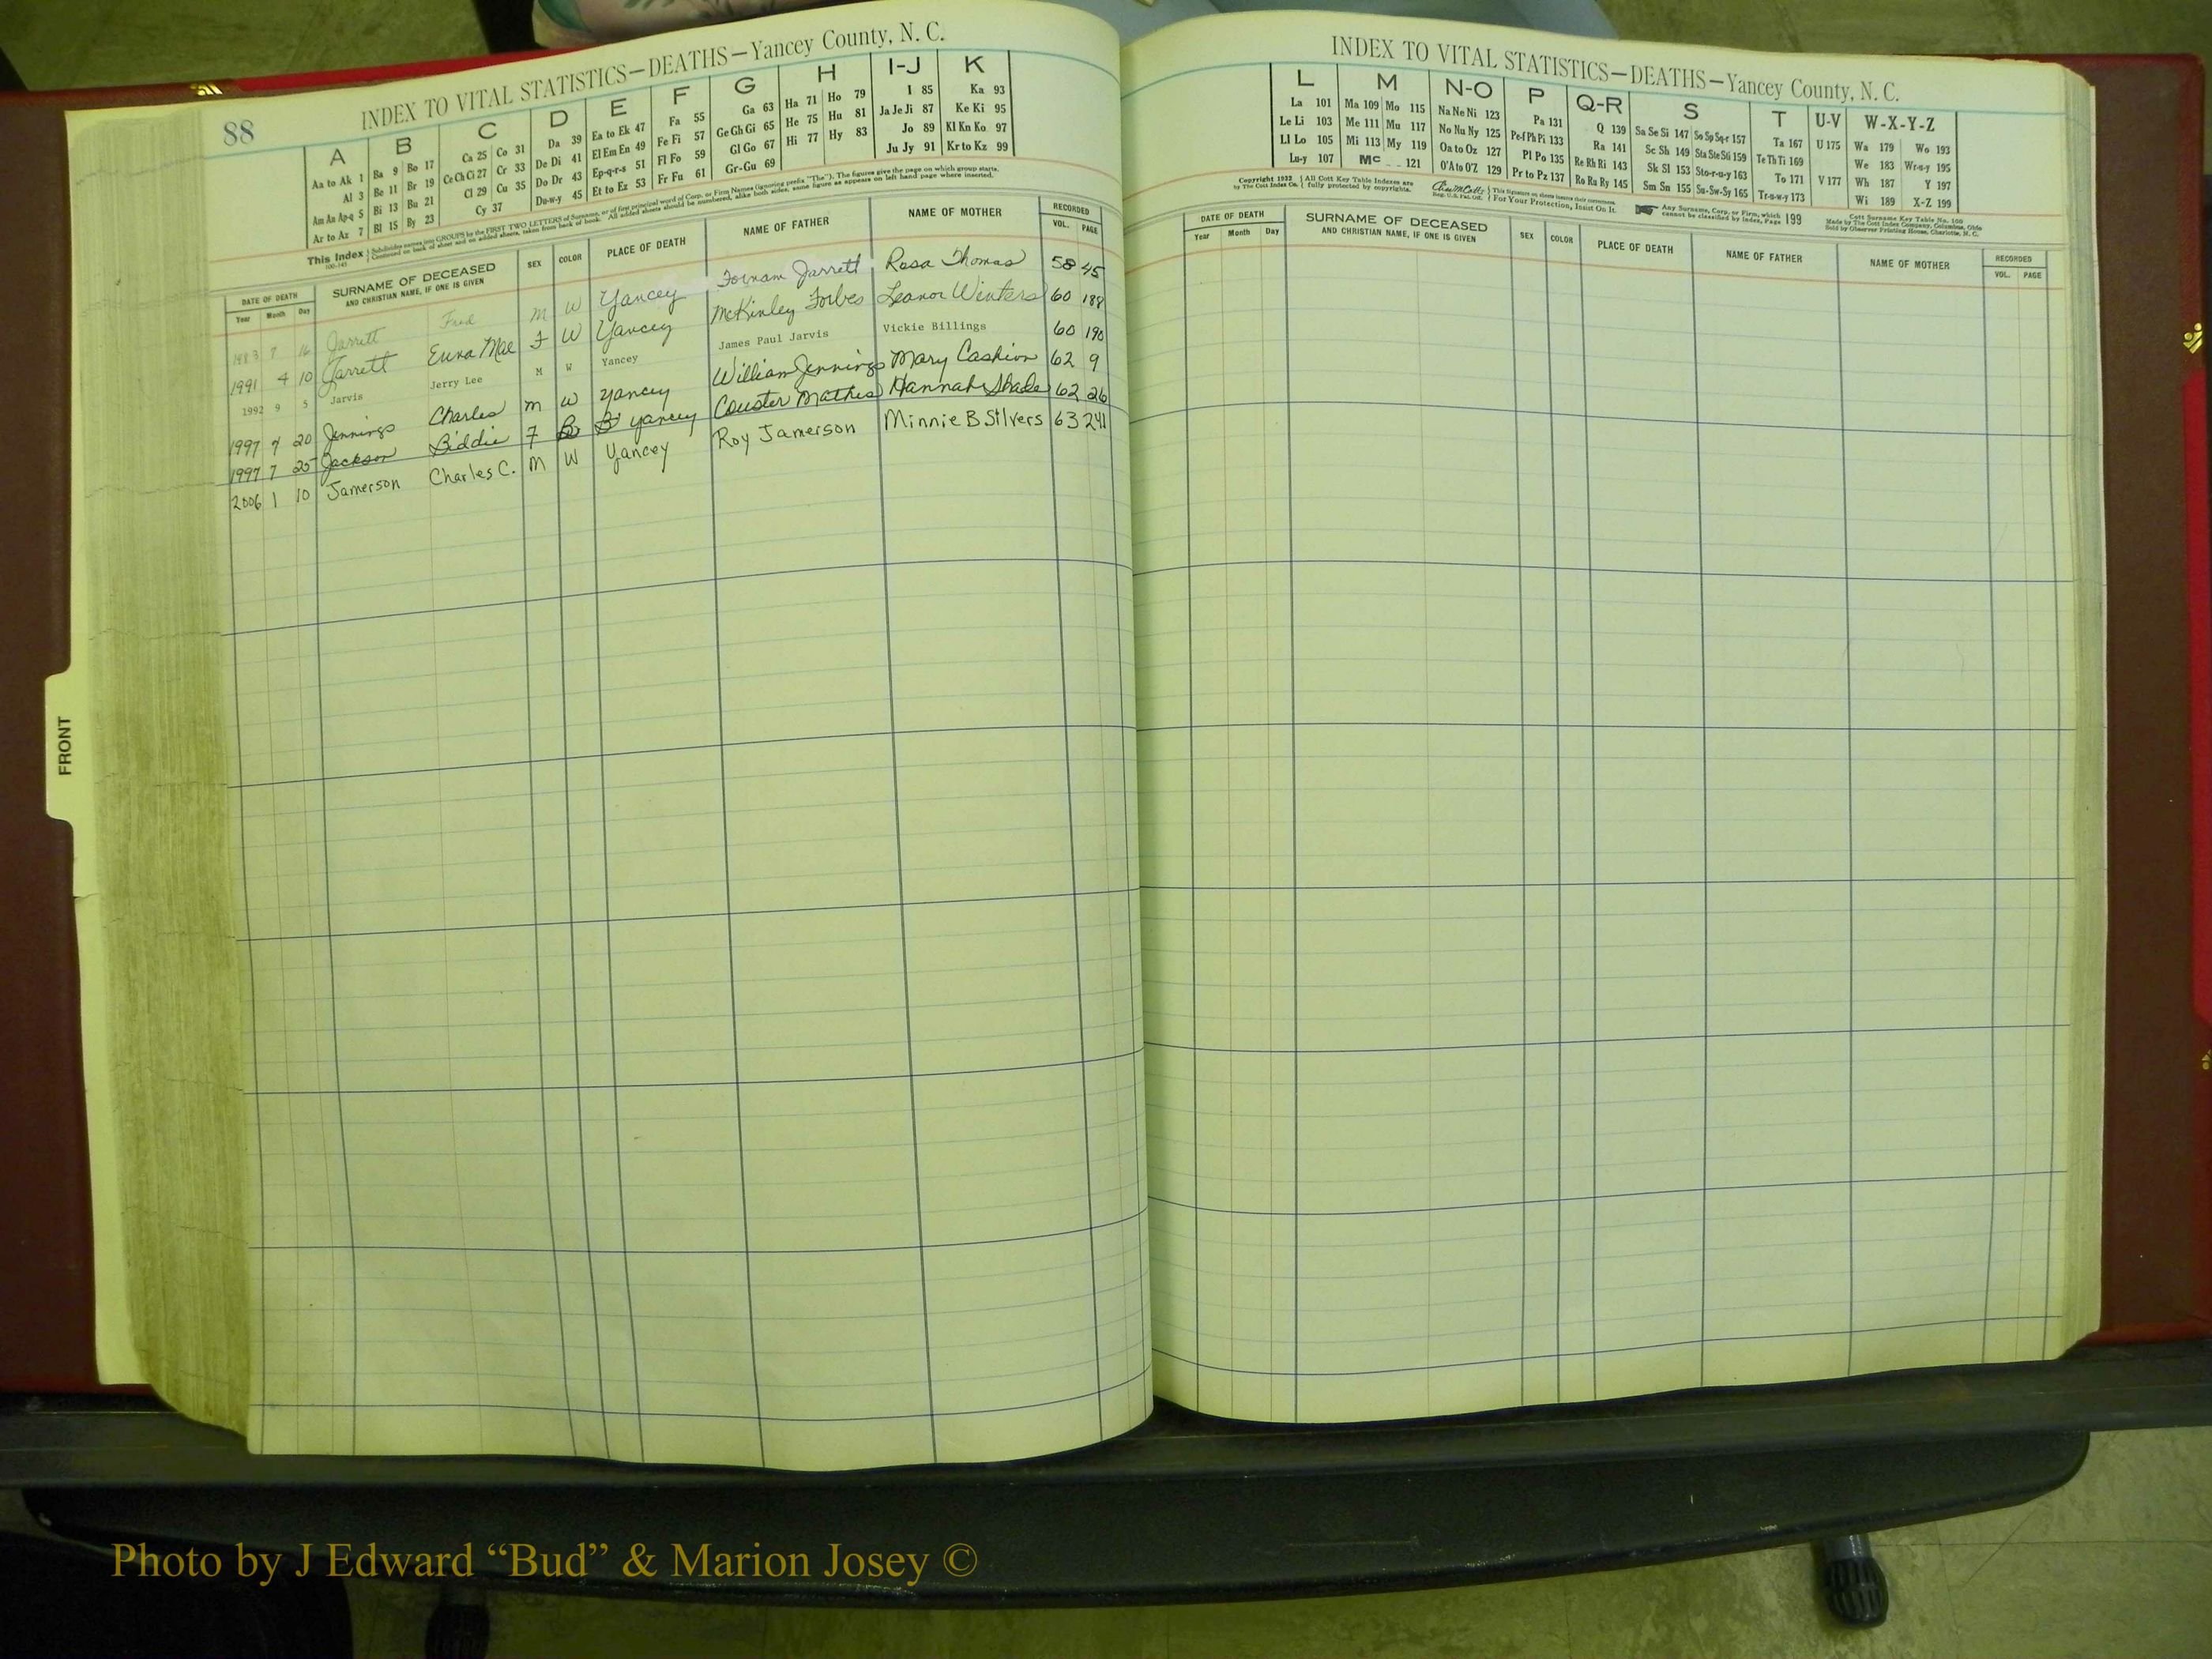 88
INDEX TO VITAL STATISTICS—DEATHS—Yancey County, N. C.
A B C D E F G H I-J K
Aa to Ak 1 Ba 9 Bo 17 Ca 25 Co 31 Da 39 Ea to Ek 47 Fa 55 Ga 63 Ha 71 Ho 79 I 85 Ka 93
Al 3 Be 11 Br 19 Ce Ch Ci 27 Cr 33 De Di 41 El Em En 49 Fe Fi 57 Ge Gh Gi 65 He 75 Hu 81 Ja Je Ji 87 Ke Ki 95
Am An Ap-q 5 Bi 13 Bu 21 Cl 29 Cu 35 Do Dr 43 Ep-q-r-s 51 Fl Fo 59 Gl Go 67 Hi 77 Hy 83 Jo 89 Kl Kn Ko 97
Ar to Az 7 Bl 15 By 23 Cy 37 Du-w-y 45 Et to Ez 53 Fr Fu 61 Gr-Gu 69 Ju Jy 91 Kr to Kz 99
This Index Subdivides names into GROUPS by the FIRST TWO LETTERS of Surname, or of first principal word of Corp. or Firm Names (ignoring prefix "The"). The figures give the page on which group starts.
Continued on back of sheet and on added sheets, taken from back of book. All added sheets should be numbered, alike both sides, same figure as appears on left hand page where inserted.
DATE OF DEATH SURNAME OF DECEASED SEX COLOR PLACE OF DEATH NAME OF FATHER NAME OF MOTHER RECORDED
Year Month Day AND CHRISTIAN NAME, IF ONE IS GIVEN VOL. PAGE
1983 7 16 Jarrett Fred M W Yancey Jarrett Rosa Thomas 58 45
1991 4 10 Jarrett Euna Mae F W Yancey McKinley Forbes Leanor Winters 60 188
1992 9 5 Jarvis Jerry Lee M W Yancey James Paul Jarvis Vickie Billings 60 190
1997 4 20 Jennings Charles M W Yancey William Jennings Mary Cashion 62 9
1997 7 25 Jackson Biddie F B Yancey Couster Mathis Hannah Shade 62 26
2006 1 10 Jamerson Charles C. M W Yancey Roy Jamerson Minnie B Silvers 63 241
FRONT
INDEX TO VITAL STATISTICS—DEATHS—Yancey County, N. C.
L M N-O P Q-R S T U-V W-X-Y-Z
La 101 Ma 109 Mo 115 Na Ne Ni 123 Pa 131 Q 139 Sa Se Si 147 So Sp Sq-r 157 Ta 167 U 175 Wa 179 Wo 193
Le Li 103 Me 111 Mu 117 No Nu Ny 125 Pe-f Ph Pi 133 Ra 141 Sc Sh 149 Sta Ste Sti 159 Te Th Ti 169 We 183 Wr-u-y 195
Ll Lo 105 Mi 113 My 119 Oa to Oz 127 Pl Po 135 Re Rh Ri 143 Sk Sl 153 Sto-r-u-y 163 To 171 V 177 Wh 187 Y 197
Lu-y 107 Mc 121 O'A to O'Z 129 Pr to Pz 137 Ro Ru Ry 145 Sm Sn 155 Su-Sw-Sy 165 Tr-u-w-y 173 Wi 189 X-Z 199
Copyright 1932 All Cott Key Table Indexes are
by The Cott Index Co. fully protected by copyrights.
For Your Protection, Insist On It.
Any Surname, Corp. or Firm, which
cannot be classified by Index, Page 199
Made by The Cott Index Company, Columbus, Ohio
Sold by Observer Printing House, Charlotte, N. C.
DATE OF DEATH SURNAME OF DECEASED SEX COLOR PLACE OF DEATH NAME OF FATHER NAME OF MOTHER RECORDED
Year Month Day AND CHRISTIAN NAME, IF ONE IS GIVEN VOL. PAGE
Photo by J Edward “Bud” & Marion Josey ©